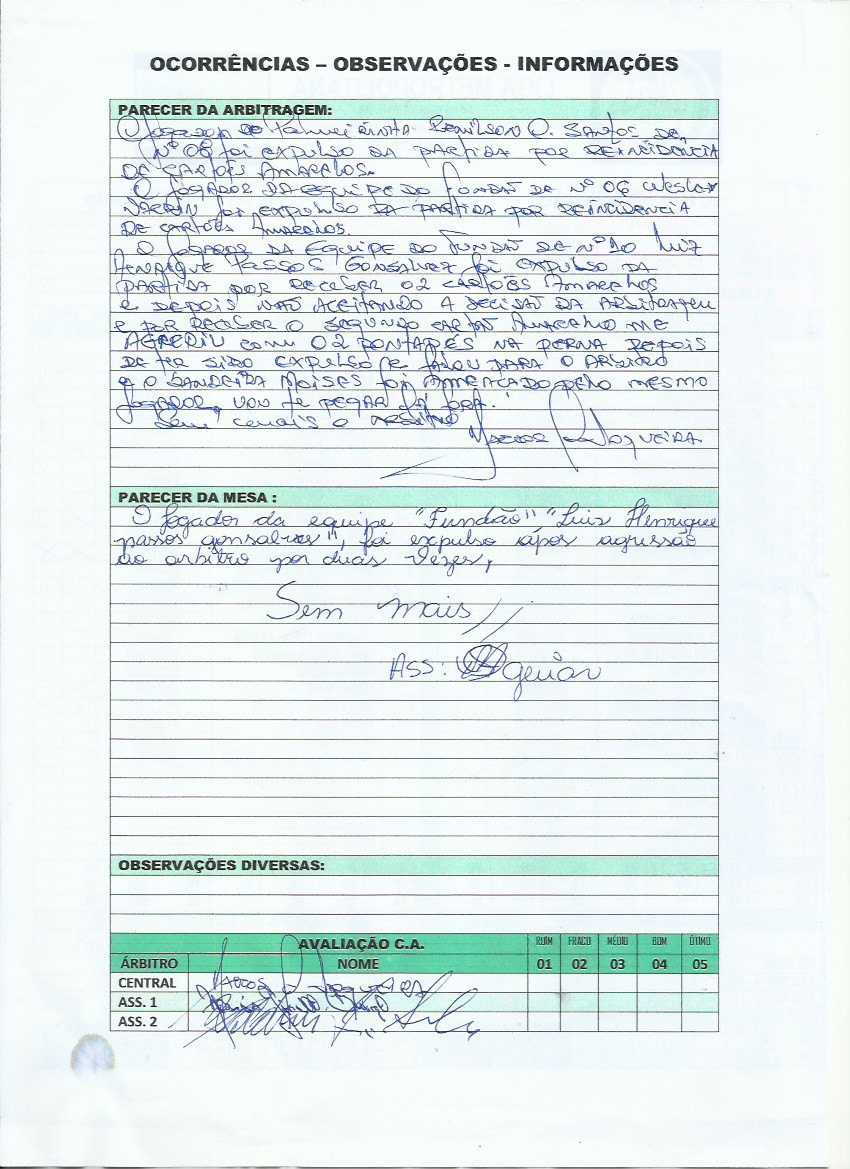 OCORRÊNCIAS – OBSERVAÇÕES - INFORMAÇÕES
PARECER DA ARBITRAGEM:
O jogador do Palmeirinha Santos de
Nº 08 foi expulso da partida por reincidencia
de cartões Amarelos.
O jogador da equipe do fundão de nº 06
foi expulso da partida por reincidencia
de cartões Amarelos.
O jogador da Equipe do Fundão de nº 10 Luiz
Henrique Passos Gonsalvez foi expulso da
partida por receber 02 cartões Amarelos
e depois não aceitando a decisão da arbitragem
e por receber o segundo cartão Amarelo me
AGREDIU com 02 pontapés na perna depois
de ter sido expulso e falou para o arbitro
e o bandeira Moises foi ameaçado pelo mesmo
jogador, vou te pegar lá fora.
Sem mais o arbitro
Nogueira
PARECER DA MESA :
O jogador da equipe "Fundão" "Luis Henrique
passos gonsalves", foi expulso após agressão
ao arbitro por duas vezes,
Sem mais //
ASS:
OBSERVAÇÕES DIVERSAS:
AVALIAÇÃO C.A. RUIM FRACO MÉDIO BOM ÓTIMO
ÁRBITRO NOME 01 02 03 04 05
CENTRAL
ASS. 1
ASS. 2